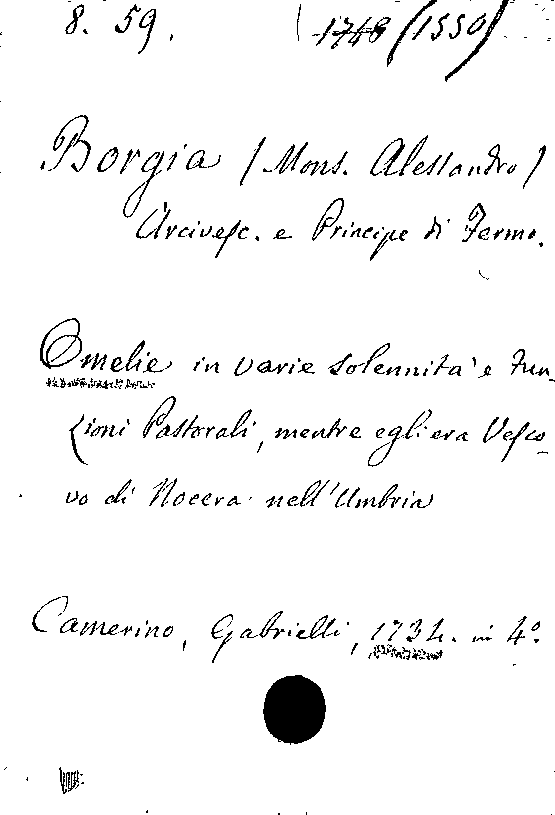 8. 59. 1748 (1550)
Borgia (Mons. Alessandro)
Arcivesc. e Principe di Fermo.
Omelie in varie solennita' e Fun-
zioni Pastorali, mentre egli era Vesco-
vo di Nocera nell'Umbria
Camerino, Gabrielli, 1734. in 4º.